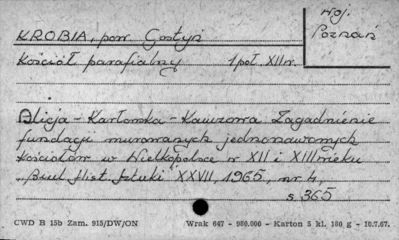 woj.
Poznań
KROBIA, pow Gostyń
Kościół parafialny 1 poł. XII w.
Alicja - Karłowska - Kamzowa Zagadnienie
fundacji murowanych jednonawowych
kościołów w Wielkopolsce w XII i XIII wieku
„Biul Hist. Sztuki" XXVII, 1965, nr 4,
s. 365
CWD B 15b Zam. 915/DW/ON Wrak 647 - 980.000 - Karton 5 kl. 180 g - 10.7.67.